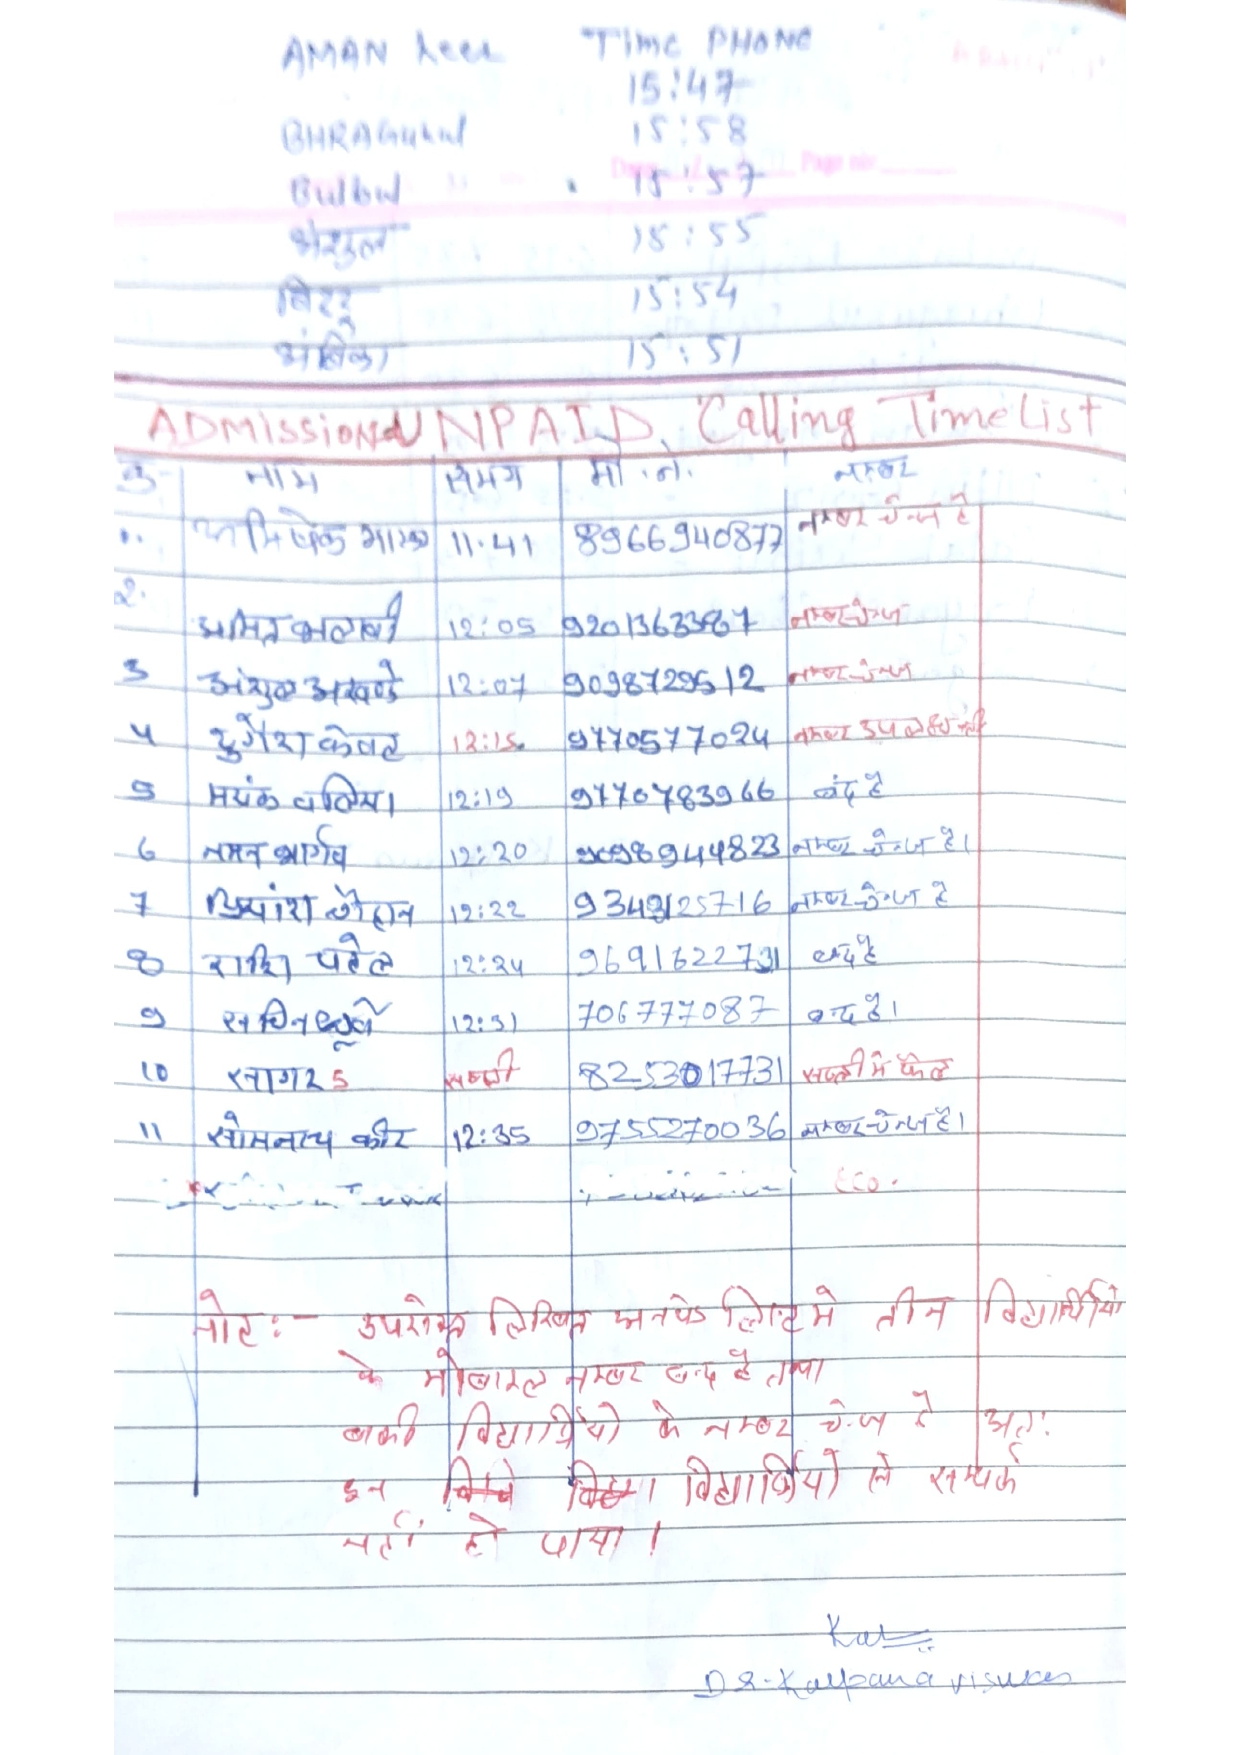 AMAN Time PHONE
15:47
15:58
Bulbul 15:57
15:55
15:54
अंबिका 15:51
Date Page no.
ADMISSION UNPAID Calling Time List
क्र. नाम समय मो.नं. नम्बर
1. अभिषेक 11.41 8966940877 नम्बर चेन्ज है
2. अमित 12:05 नम्बर चेन्ज
3 अंशुल अखण्डे 12:07 9098729512 नम्बर चेन्ज
4 दुर्गेश केवट 12:15 9770577024 नम्बर उपलब्ध नही
5 मयंक वलिया 12:19 9770783966 बंद है
6 नमन भार्गव 12:20 9098944823 नम्बर चेन्ज है।
7 प्रियांश चौहान 12:22 नम्बर चेन्ज है
8 पटेल 12:24 9691622731 बन्द है
9 सचिन धुर्वे 12:31 706777087 बन्द है।
10 सागर 5 सब्जी 8253017731 सप्ली मे
11 सोमनाथ कीर 12:35 9755270036 नम्बर चेन्ज है।
Eco.
नोट:- उपरोक्त लिखित अनपेड लिस्ट मे तीन विद्यार्थियो
के मोबाइल नम्बर बन्द है तथा
बाकी विद्यार्थियो के नम्बर चेन्ज है अत:
इन विद्यार्थियो से सम्पर्क
नहीं हो पाया।
Dr. Kalpana